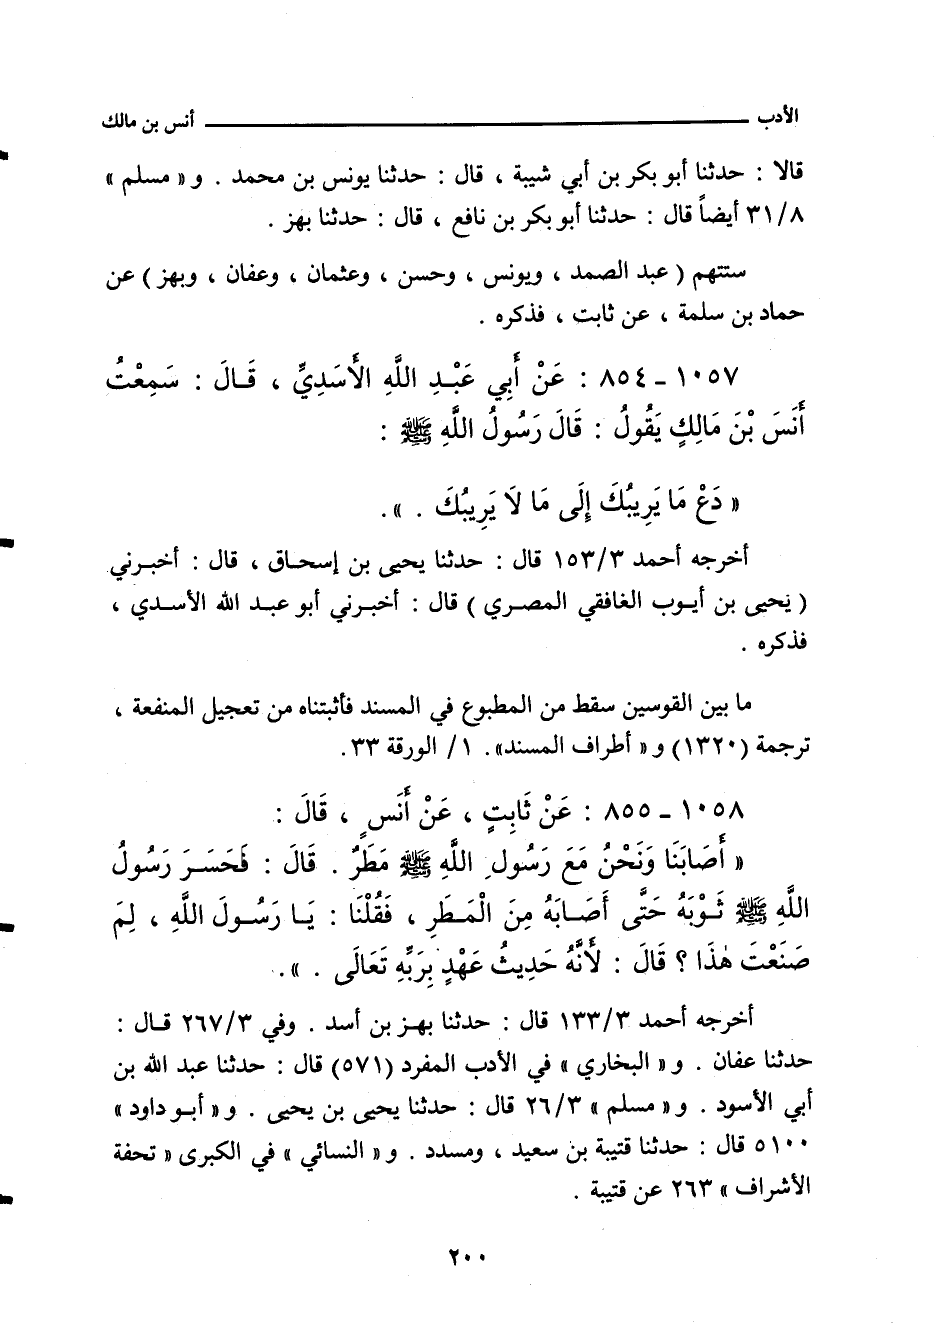 الأدب ـــــــــ أنس بن مالك
قالا : حدثنا أبو بكر بن أبي شيبة ، قال : حدثنا يونس بن محمد . و « مسلم »
٣١/٨ أيضاً قال : حدثنا أبو بكر بن نافع ، قال : حدثنا بهز .
ستتهم ( عبد الصمد ، ويونس ، وحسن ، وعثمان ، وعفان ، وبهز ) عن
حماد بن سلمة ، عن ثابت ، فذكره .
١٠٥٧ ـ ٨٥٤ : عَنْ أَبِي عَبْدِ اللَّهِ الأَسَدِيِّ ، قَالَ : سَمِعْتُ
أَنَسَ بْنَ مَالِكٍ يَقُولُ : قَالَ رَسُولُ اللَّهِ ﷺ :
« دَعْ مَا يَرِيبُكَ إِلَى مَا لَا يَرِيبُكَ . ».
أخرجه أحمد ١٥٣/٣ قال : حدثنا يحيى بن إسحاق ، قال : أخبرني
( يحيى بن أيوب الغافقي المصري ) قال : أخبرني أبو عبد الله الأسدي ،
فذكره .
ما بين القوسين سقط من المطبوع في المسند فأثبتناه من تعجيل المنفعة ،
ترجمة (١٣٢٠) و « أطراف المسند». ١/ الورقة ٣٣.
١٠٥٨ ـ ٨٥٥ : عَنْ ثَابِتٍ ، عَنْ أَنَسٍ ، قَالَ :
« أَصَابَنَا وَنَحْنُ مَعَ رَسُولِ اللَّهِ ﷺ مَطَرٌ . قَالَ : فَحَسَرَ رَسُولُ
اللَّهِ ﷺ ثَوْبَهُ حَتَّى أَصَابَهُ مِنَ الْمَطَرِ ، فَقُلْنَا : يَا رَسُولَ اللَّهِ ، لِمَ
صَنَعْتَ هٰذَا ؟ قَالَ : لأَنَّهُ حَدِيثُ عَهْدٍ بِرَبِّهِ تَعَالَى . ».
أخرجه أحمد ١٣٣/٣ قال : حدثنا بهز بن أسد . وفي ٢٦٧/٣ قال :
حدثنا عفان . و « البخاري » في الأدب المفرد (٥٧١) قال : حدثنا عبد الله بن
أبي الأسود . و « مسلم » ٢٦/٣ قال : حدثنا يحيى بن يحيى . و « أبو داود »
٥١٠٠ قال : حدثنا قتيبة بن سعيد ، ومسدد . و « النسائي » في الكبرى « تحفة
الأشراف » ٢٦٣ عن قتيبة .
٢٠٠